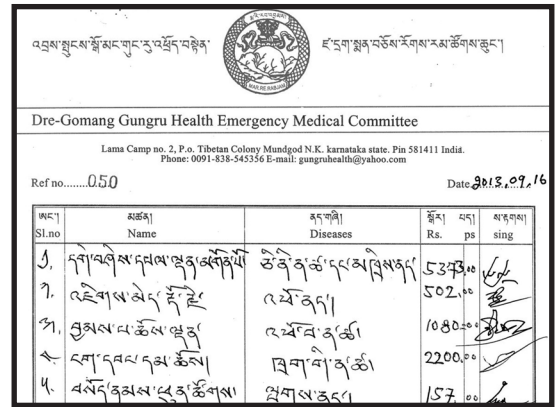 འབྲས་སྤུངས་སྒོ་མང་གུང་རུ་འཕྲོད་བསྟེན་ ཛ་དྲག་སྨན་བཅོས་རོགས་རམ་ཚོགས་ཆུང་།
MAR.RE.RABJAM
Dre-Gomang Gungru Health Emergency Medical Committee
Lama Camp no. 2, P.o. Tibetan Colony Mundgod N.K. karnataka state. Pin 581411 India.
Phone: 0091-838-545356 E-mail: gungruhealth@yahoo.com
Ref no........050 Date 2013.09.16
ཨང་། མཚན། ནད་གཞི། སྒོར། པད། ས་རྟགས།
Sl.no Name Diseases Rs. ps sing
༡. དགེ་བཤེས་དཔལ་ལྡན་མགོན་པོ 5373.00
༢. འཇིགས་མེད་རྡོ་རྗེ་ འཕོ་ནད། 502.00
༣. བྱམས་པ་ཆོས་ལྡན་ 1080.00
༤. ངག་དབང་དམ་ཆོས། ཁྲག་གི་ན་ཚ། 2200.00
༥. བསོད་ནམས་ཕུན་ཚོགས། ལྤགས་ནད། 157.00